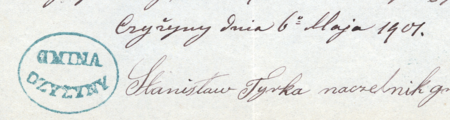 Czyżyny dnia 6º Maja 1901.
GMINA
CZYZYNY
Stanisław Tyrka naczelnik